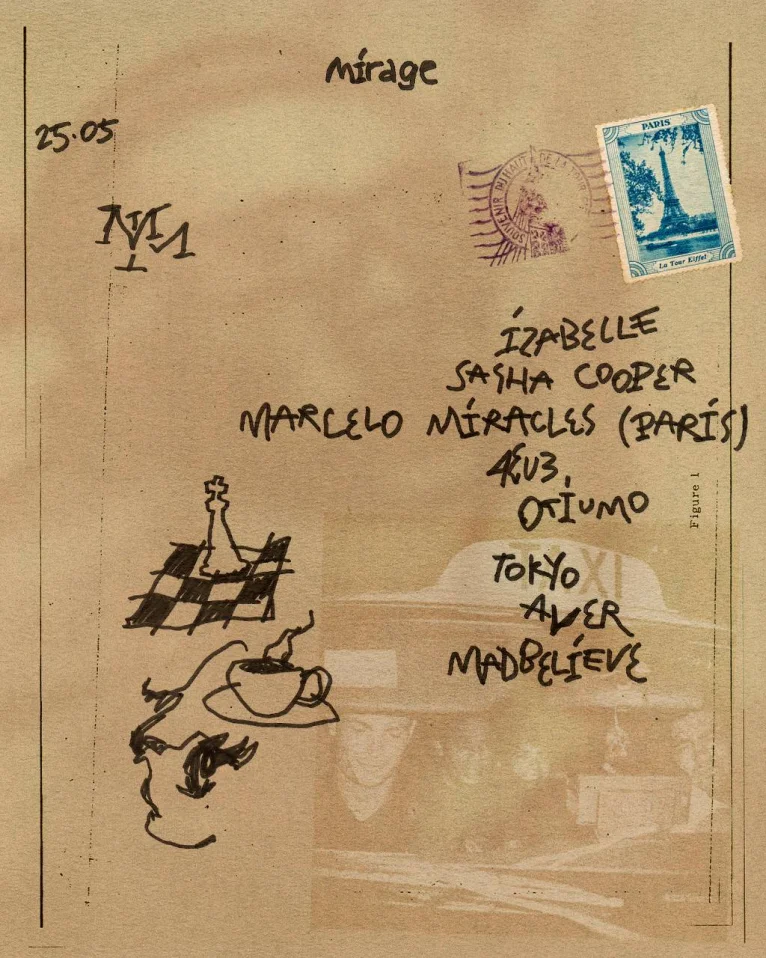 mírage
25.05
PARIS
SOUVENIR DU HAUT DE LA TOUR
La Tour Eiffel
ÍZABELLE
SASHA COOPER
MARCELO MÍRACLES (PARÍS)
OTÍUMO
Figure 1
TOKYO
TAXI
AVER
MADBELÍEVE